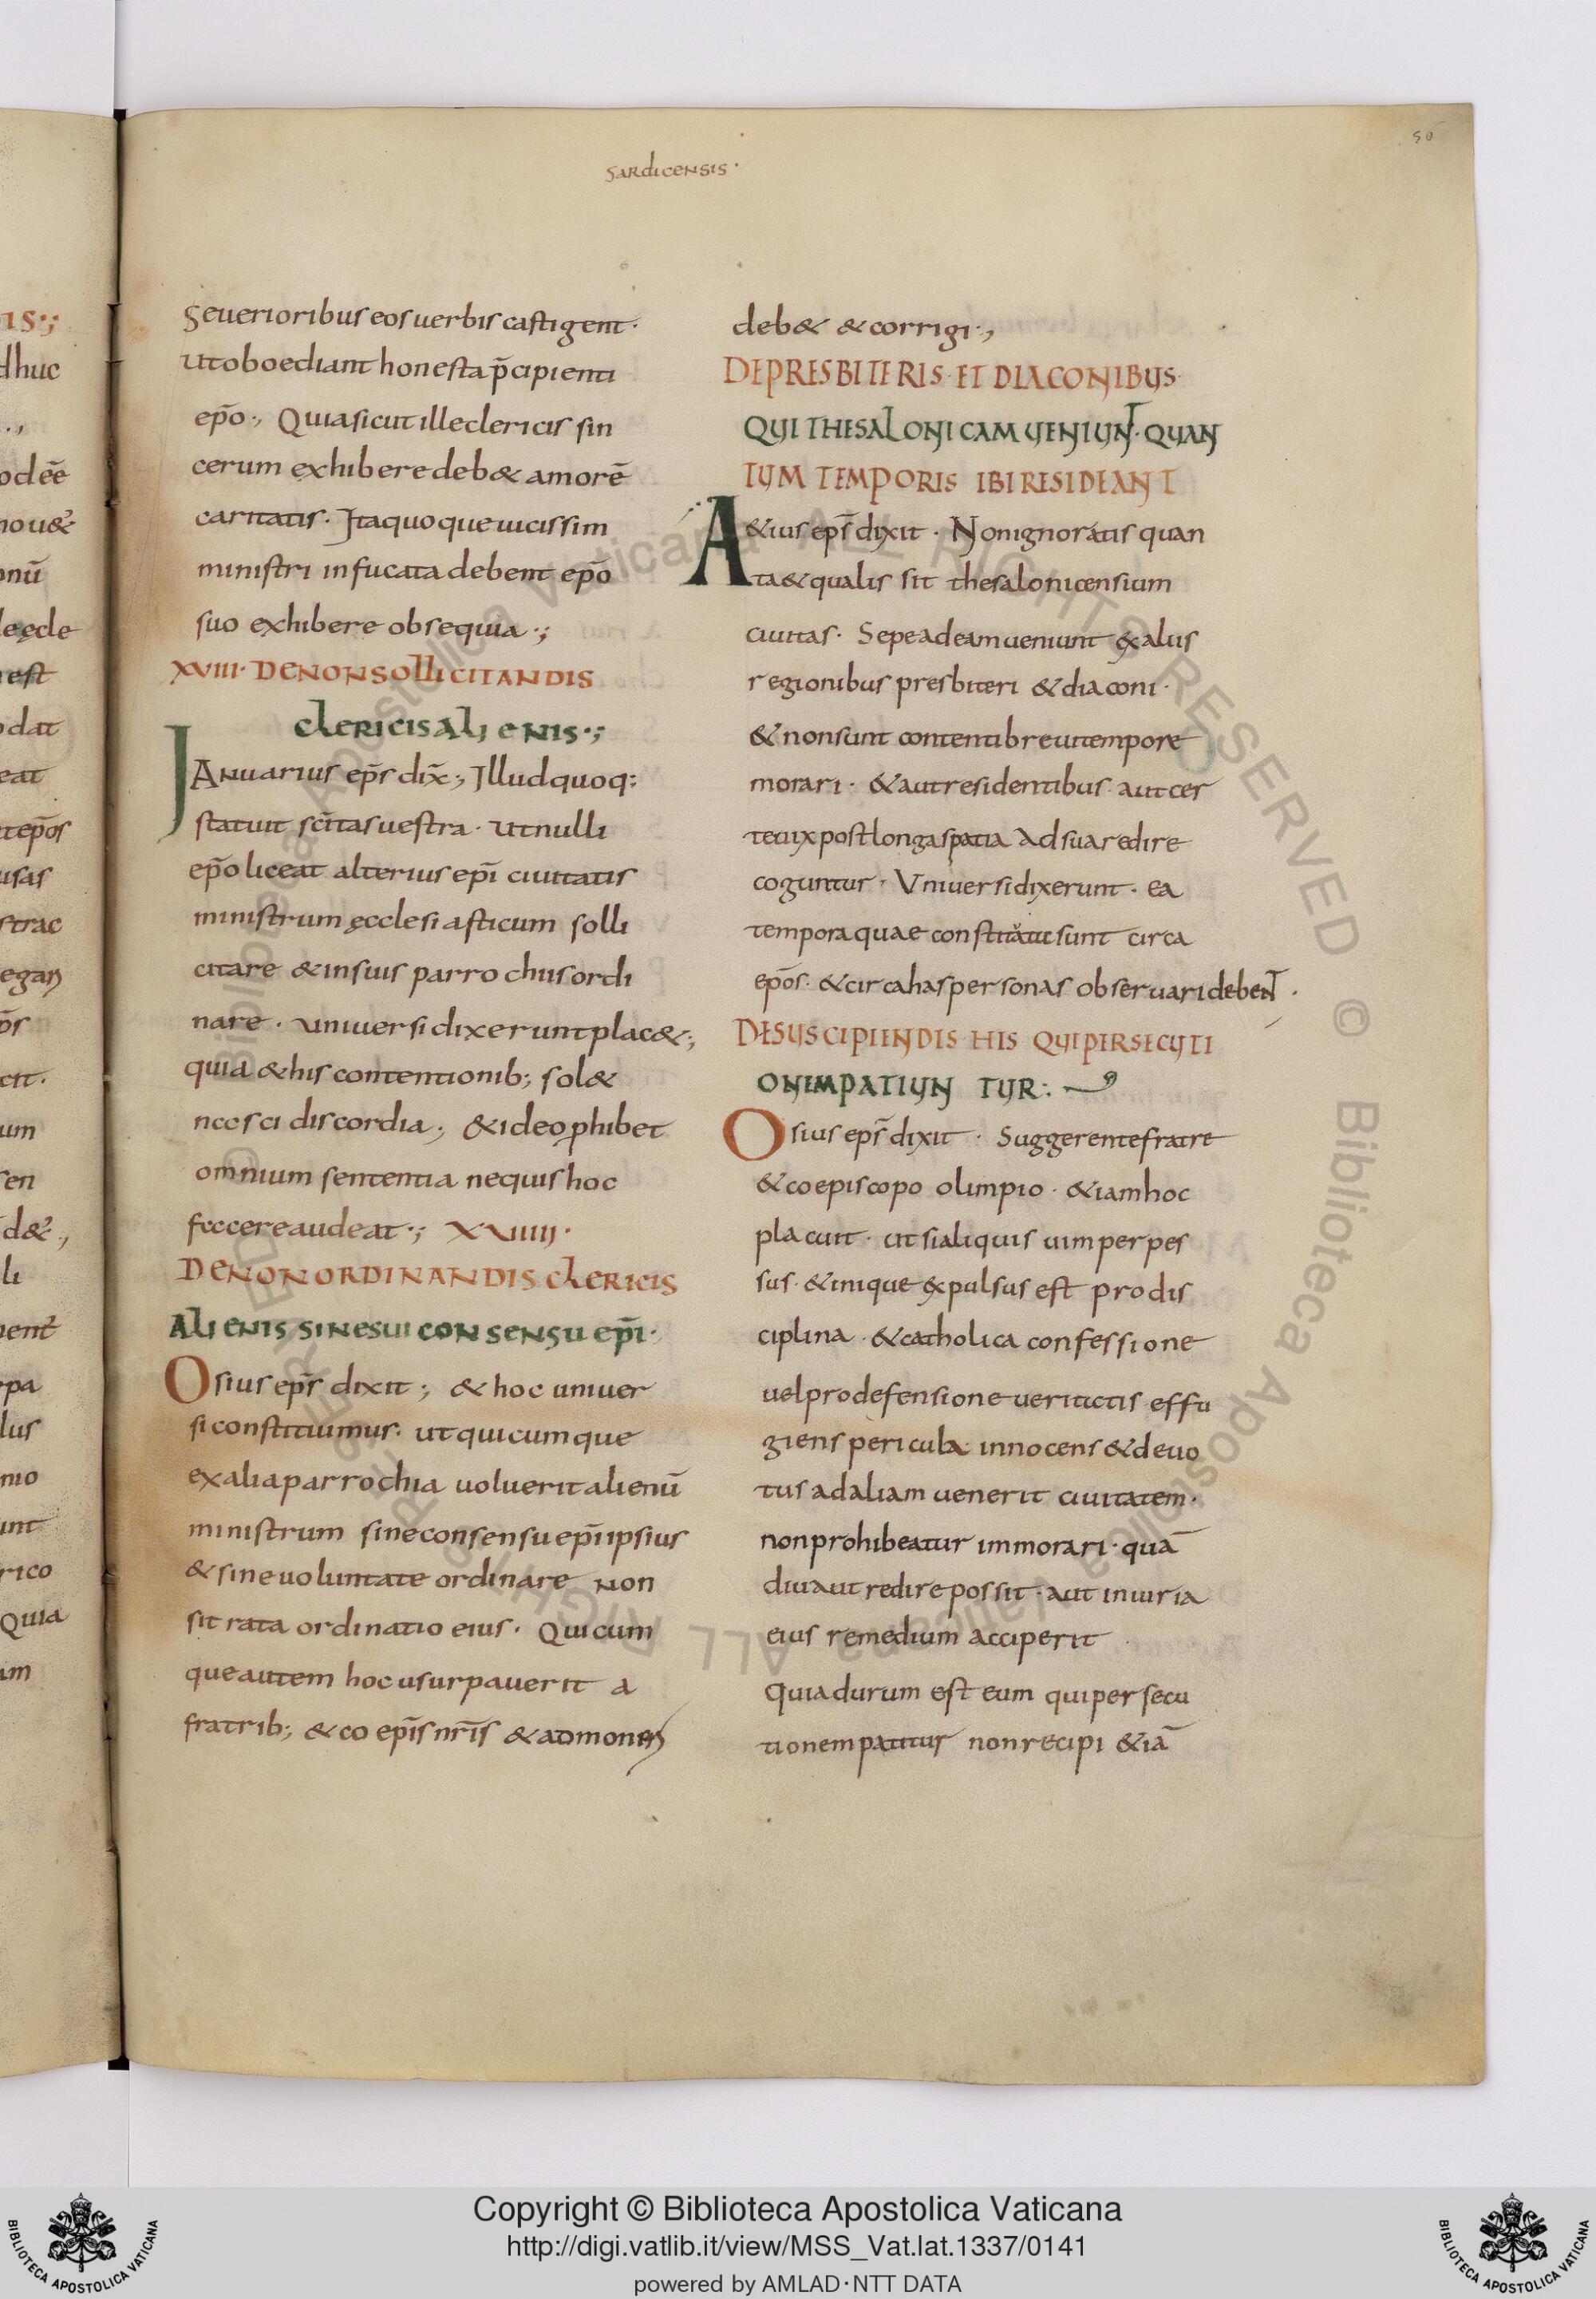 sardicensis·
50
seuerioribus eos uerbis castigent·
ut oboediant honesta p̄cipienti
ep̄o·, Quia sicut ille clericis sin
cerum exhibere deb& amorē
caritatis· Ita quoque uicissim
ministri infucata debent ep̄o
suo exhibere obsequia·;
XVIII· DE NON SOLLICITANDIS
CLERICIS ALIENIS·;
IANuarius ep̄s dix̄·, Illud quoq;
statuit sc̄itas uestra· ut nulli
ep̄o liceat alterius ep̄i ciuitatis
ministrum ęcclesiasticum solli
citare & in suis parrochiis ordi
nare· uniuersi dixerunt plac&·,
quia & his contentionib; sol&
nasci discordia; & ideo phibet
omnium sententia ne quis hoc
faccere audeat·; XVIIII·
DE NON ORDINANDIS CLERICIS
ALIENIS SINE SUI CONSENSU EP̄I·
Osius ep̄s dixit; & hoc uniuer
si constituimus· ut quicumque
ex alia parrochia uoluerit alienū
ministrum sine consensu ep̄i ipsius
& sine uoluntate ordinare non
sit rata ordinatio eius· Quicum
que autem hoc usurpauerit a
fratrib; & coep̄is nr̄is & admoneri
deb& & corrigi·,
DE PRESBITERIS ET DIACONIBUS
QUI THESALONICAM UENIUNT· QUAN
TUM TEMPORIS IBI RESIDEANT
A&ius ep̄s dixit· Non ignoratis quan
ta & qualis sit thesalonicensium
ciuitas· Sepe ad eam ueniunt ex aliis
regionibus presbiteri & diaconi·
& non sunt contenti breui tempore
morari· & aut residentibus aut cer
te uix post longa spatia ad sua redire
coguntur· Vniuersi dixerunt· ea
tempora quae constituta sunt circa
ep̄os· & circa has personas obseruari debent·
DE SUSCIPIENDIS HIS QUI PERSECUTI
ONEM PATIUNTUR:
Osius ep̄s dixit· Suggerente fratre
& coepiscopo olimpio· &iam hoc
placuit· ut si aliquis uim perpes
sus· & inique expulsus est pro dis
ciplina· & catholica confessione
uel pro defensione ueritatis effu
giens pericula innocens & deuo
tus ad aliam uenerit ciuitatem·
non prohibeatur immorari· quā
diu aut redire possit· aut iniuria
eius remedium acciperit
quia durum est eum qui persecu
tionem patitur non recipi &iā
Copyright © Biblioteca Apostolica Vaticana
http://digi.vatlib.it/view/MSS_Vat.lat.1337/0141
powered by AMLAD·NTT DATA
BIBLIOTECA APOSTOLICA VATICANA
BIBLIOTECA APOSTOLICA VATICANA